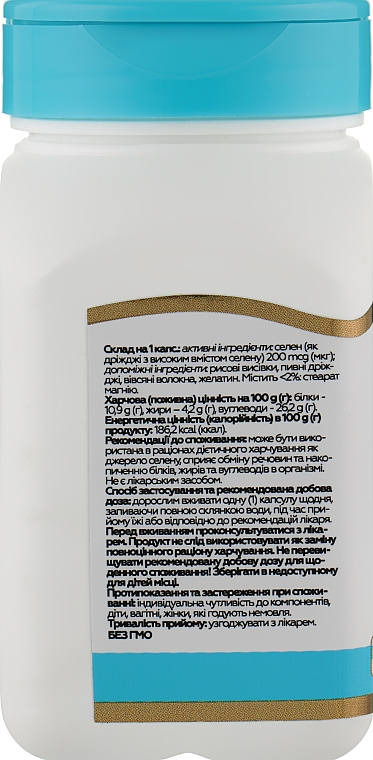 Склад на 1 капс.: активні інгредієнти: селен (як
дріжджі з високим вмістом селену) 200 mcg (мкг);
допоміжні інгредієнти: рисові висівки, пивні дріж-
джі, вівсяні волокна, желатин. Містить <2%: стеарат
магнію.
Харчова (поживна) цінність на 100 g (г): білки -
10,9 g (г), жири – 4,2 g (г), вуглеводи - 26,2 g (г).
Енергетична цінність (калорійність) в 100 g (г)
продукту: 186,2 kcal (ккал).
Рекомендації до споживання: може бути вико-
ристана в раціонах дієтичного харчування як
джерело селену, сприяє обміну речовин та нако-
пиченню білків, жирів та вуглеводів в організмі.
Не є лікарським засобом.
Спосіб застосування та рекомендована добова
доза: дорослим вживати одну (1) капсулу щодня,
запиваючи повною склянкою води, під час при-
йому їжі або відповідно до рекомендацій лікаря.
Перед вживанням проконсультуватися з ліка-
рем. Продукт не слід використовувати як заміну
повноцінного раціону харчування. Не переви-
щувати рекомендовану добову дозу для що-
денного споживання! Зберігати в недоступному
для дітей місці.
Протипоказання та застереження при спожи-
ванні: індивідуальна чутливість до компонентів,
діти, вагітні, жінки, які годують немовля.
Тривалість прийому: узгоджувати з лікарем.
БЕЗ ГМО